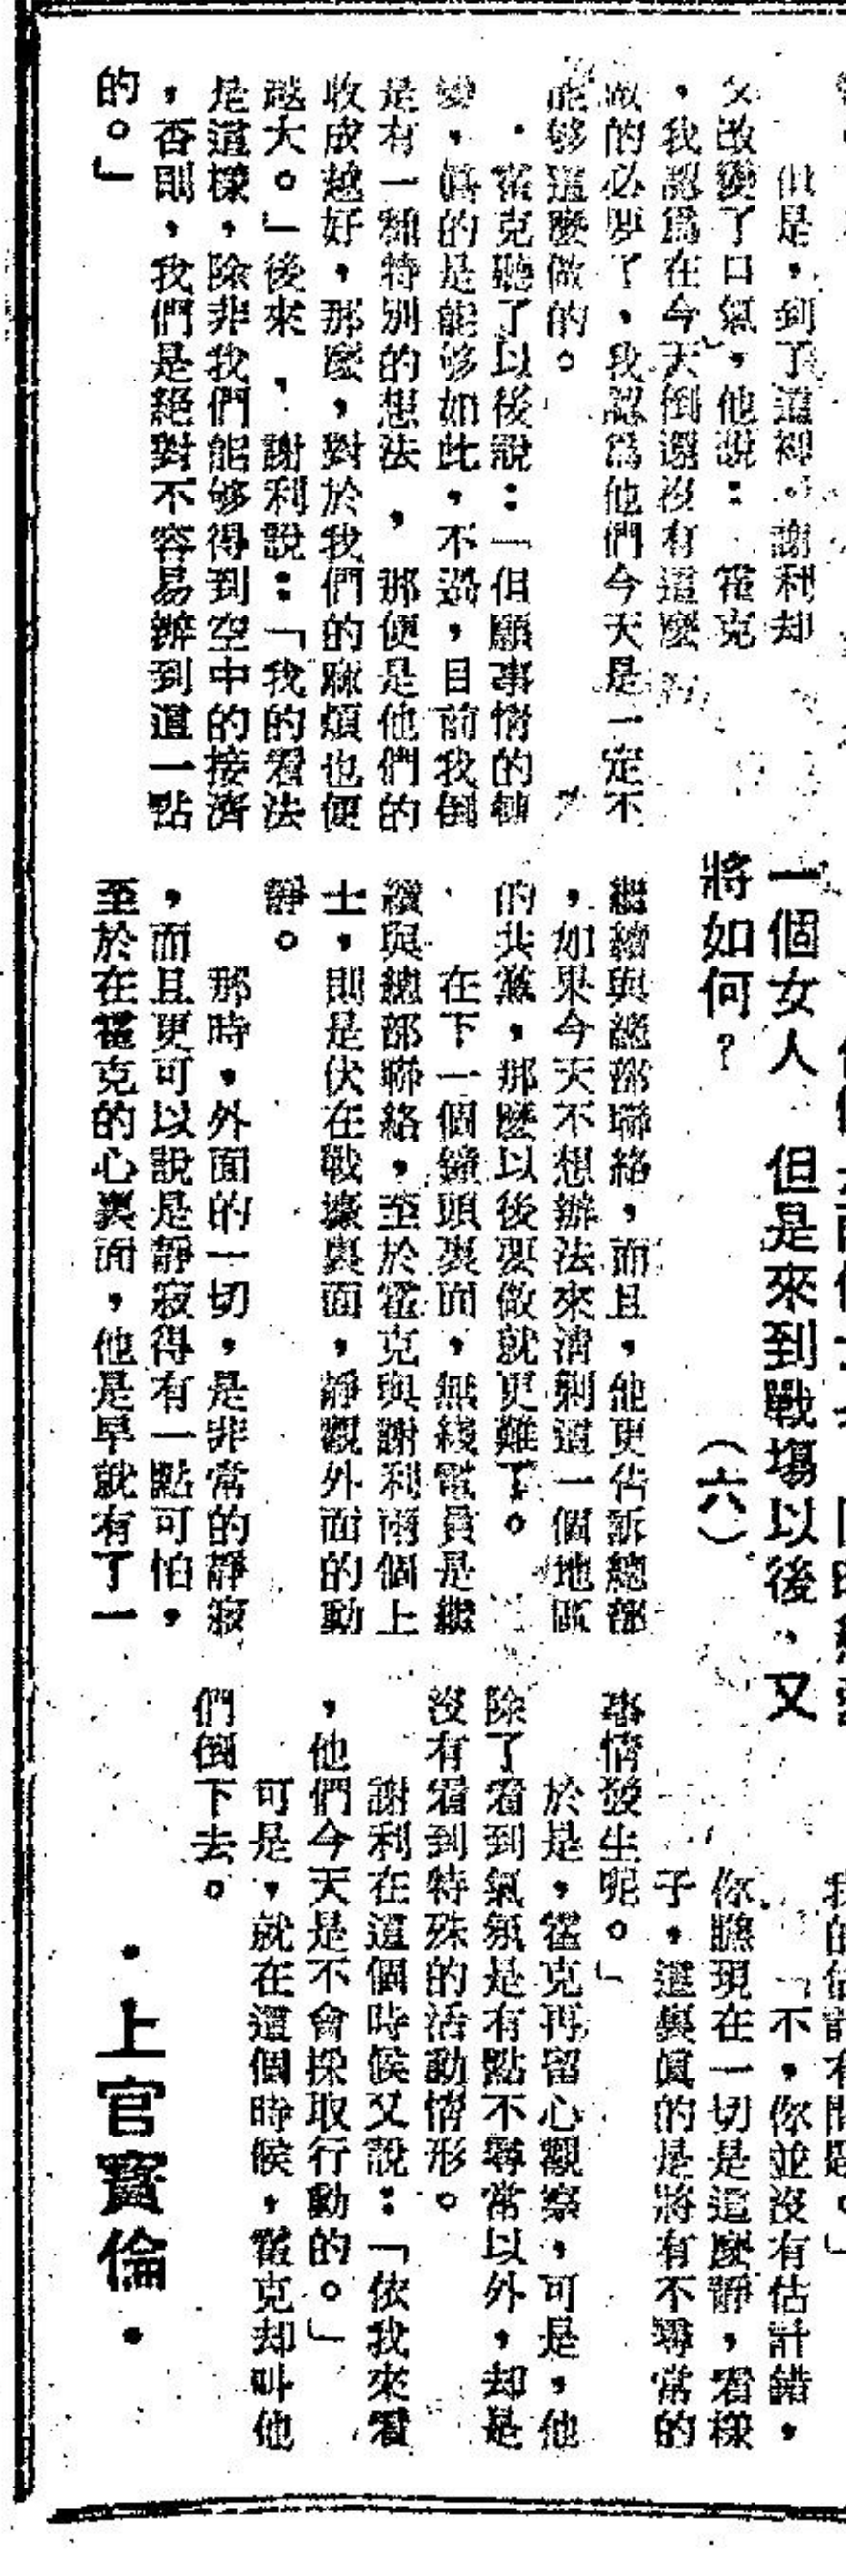 但是，到了這裡，謝利却
又改變了口氣，他說：霍克
，我認爲在今天倒還沒有這麼
做的必要了，我認爲他們今天是一定不
能够這麼做的。
霍克聽了以後說：「但願事情的
變，眞的是能够如此，不過，目前我倒
是有一種特別的想法，那便是他們的
收成越好，那麼，對於我們的麻煩也便
越大。」後來，謝利說：「我的看法
是這樣，除非我們能够得到空中的接濟
，否則，我們是絕對不容易辦到這一點
的。」
一個女人　但是來到戰場以後、又
將如何？　（六）
繼續與總部聯絡，而且，他更告訴總部
，如果今天不想辦法來清剿這一個地區
的共黨，那麼以後要做就更難了。
在下一個鐘頭裏面，無綫電員是繼
續與總部聯絡，至於霍克與謝利兩個上
士，則是伏在戰壕裏面，靜觀外面的動
靜。
那時，外面的一切，是非常的靜寂
，而且更可以說是靜寂得有一點可怕，
至於在霍克的心裏面，他是早就有了一
我的估計有問題。」
「不，你並沒有估計錯，
你瞧現在一切是這麼靜，看樣
子，這裏眞的是將有不尋常的
事情發生呢。」
於是，霍克再留心觀察，可是，他
除了看到氣氛是有點不尋常以外，却是
沒有看到特殊的活動情形。
謝利在這個時候又說：「依我來看
，他們今天是不會採取行動的。」
可是，就在這個時候，霍克却叫他
們倒下去。
・上官寶倫・